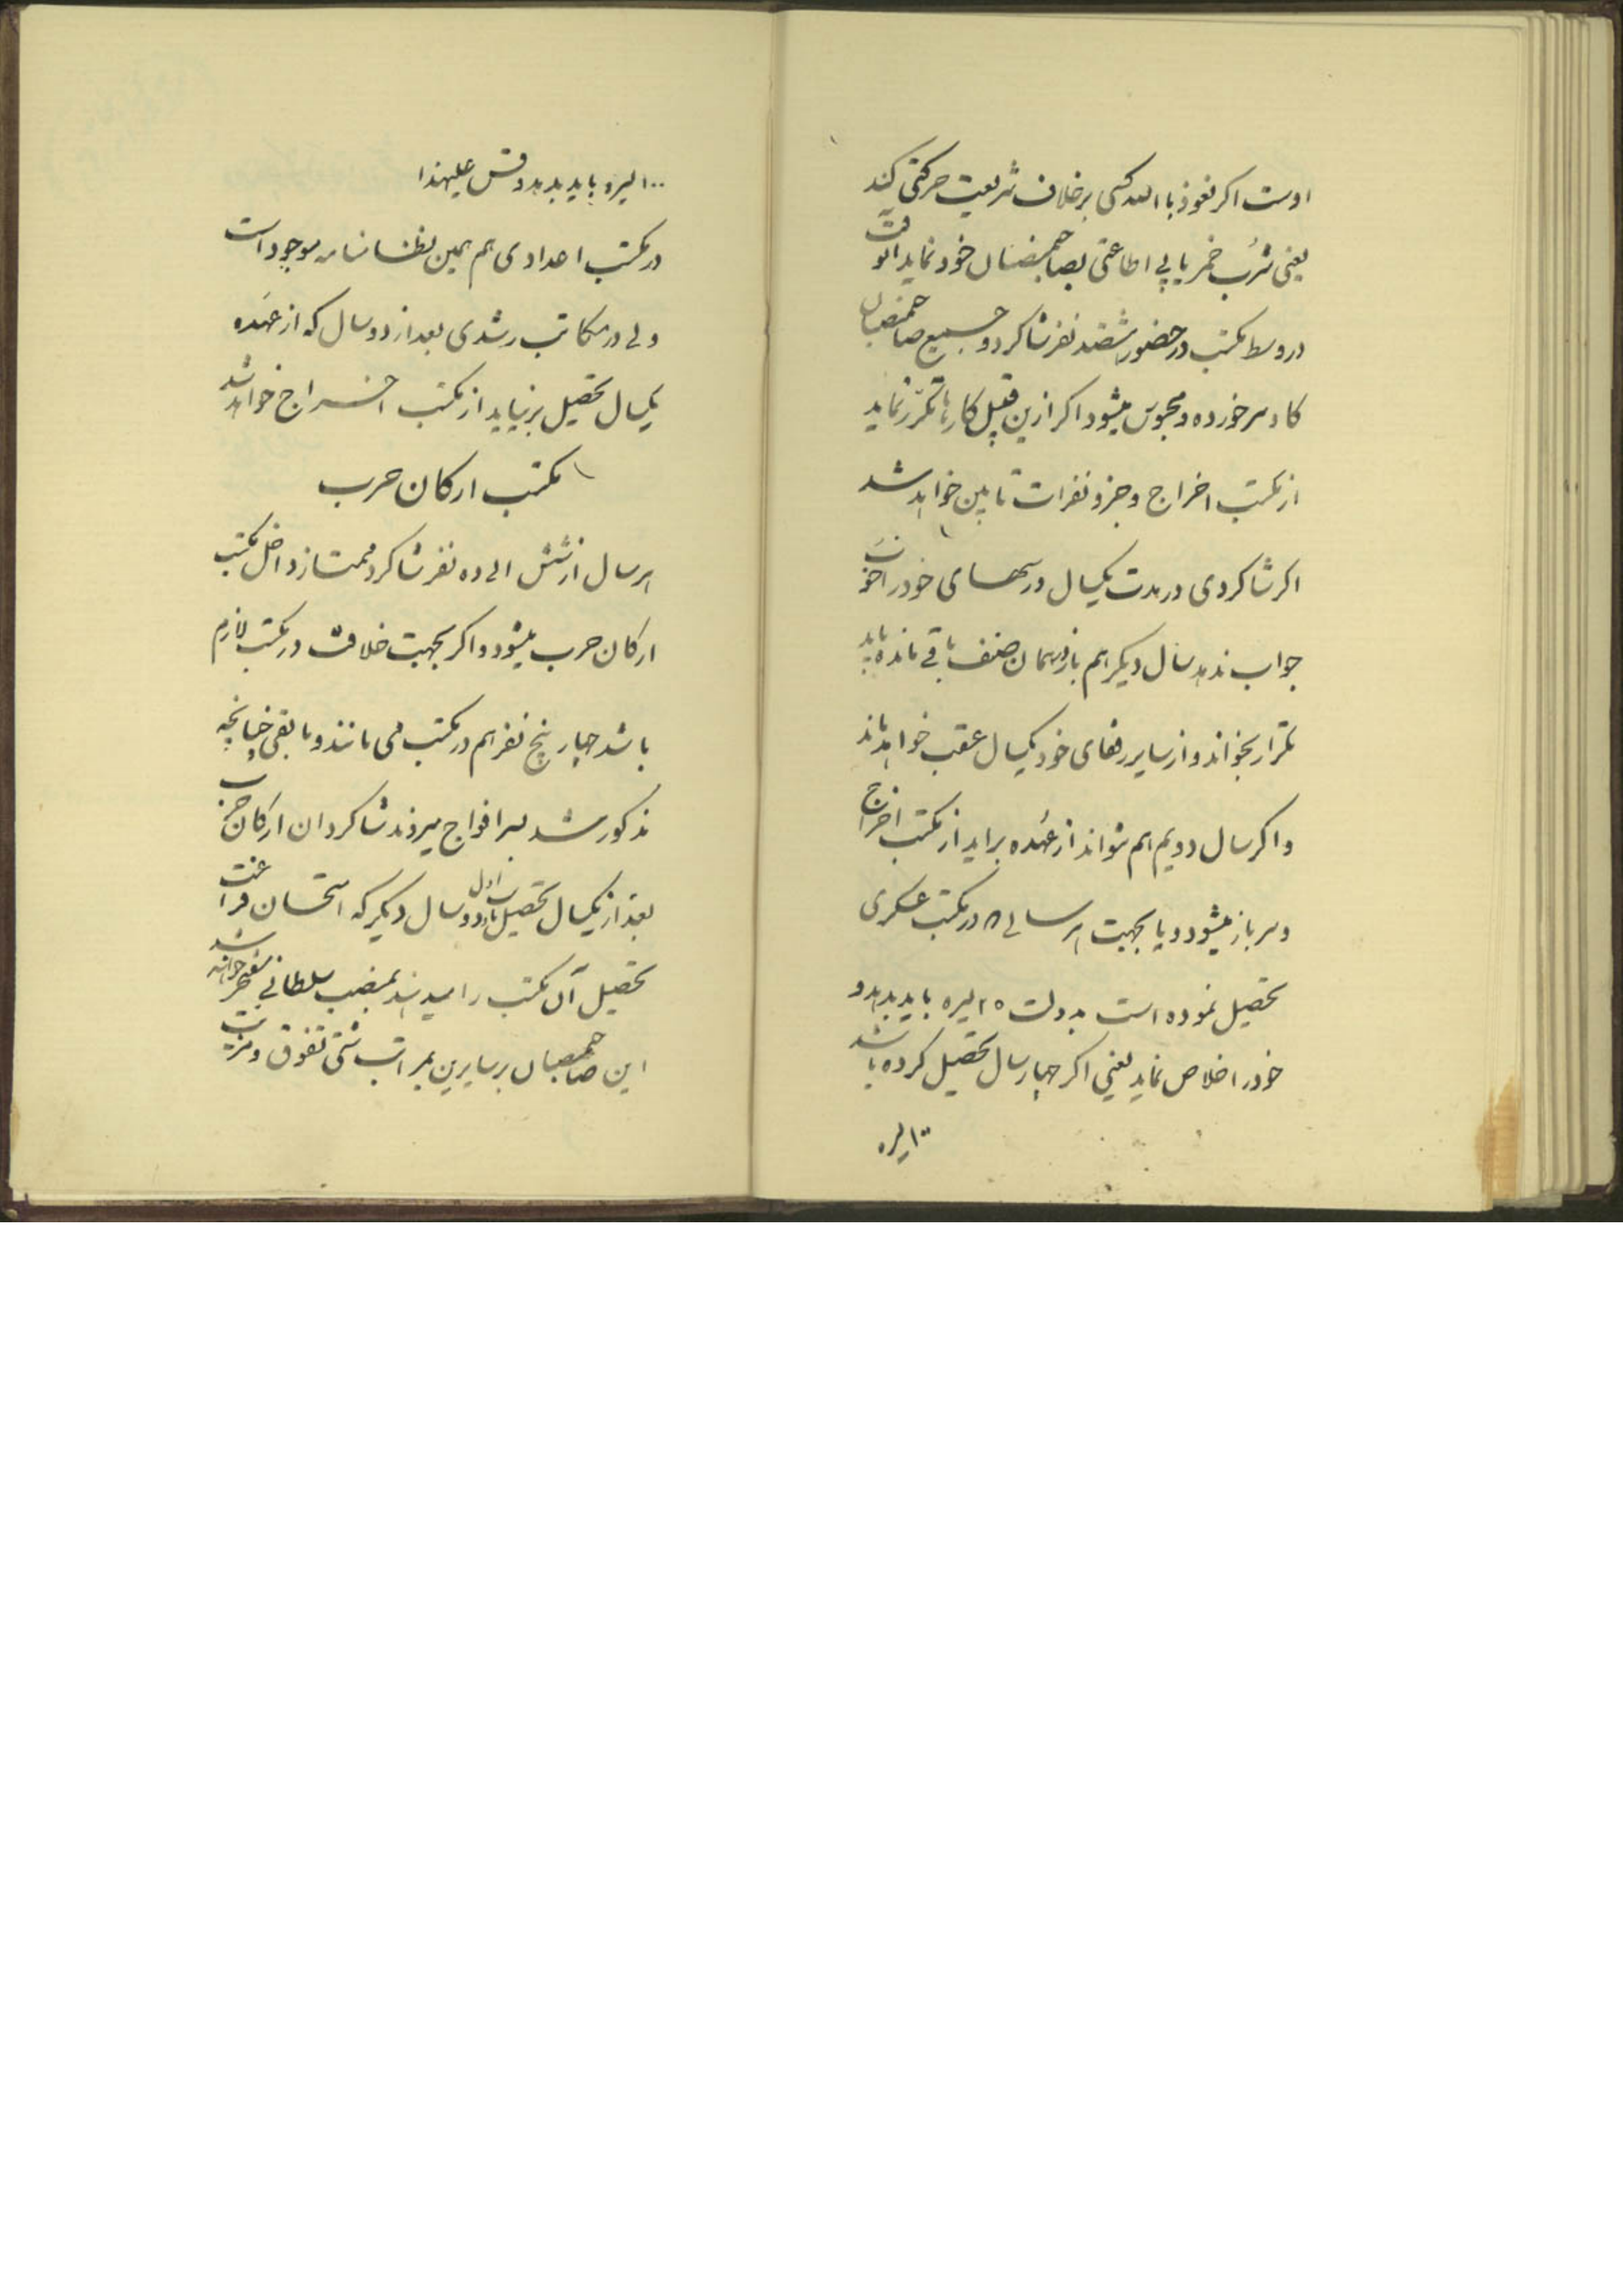 اوست اکر نعوذ باالله کسی برخلاف شریعت حرکتی کند
یعنی شرب خمر یا بی اطاعتی بصاحبمنصبان خود نماید آنوقت
در وسط مکتب در حضور ششصد نفر شاکرد و جمیع صاحبمنصبان
خورده و محبوس میشود اکر ازین قبیل کارها تکرر نماید
از مکتب اخراج و جزو نفرات تابین خواهد شد
اکر شاکردی در مدت یکسال درسهای خود را خوب
جواب ندهد سال دیکر هم باز در همان صنف باقی مانده باید
تکرار بخواند و از سایر رفقای خود یکسال عقب خواهد ماند
و اکر سال دویم هم نتواند از عهده براید از مکتب اخراج
و سرباز میشود و یا بجهت هر سالی که در مکتب عسکری
تحصیل نموده است بدولت ۲۵ لیره باید بدهد و
خود را خلاص نماید یعنی اکر چهار سال تحصیل کرده باشد
۱۰۰ لیره
۱۰۰ لیره باید بدهد و قس علیهذا
در مکتب اعدادی هم همین نظامنامه موجود است
ولی در مکاتب رشدی بعد از دو سال که از عهده
یکسال تحصیل برنیاید از مکتب اخراج خواهد شد
مکتب ارکان حرب
هر سال از شش الی ده نفر شاکرد ممتاز داخل مکتب
ارکان حرب میشود و اکر بجهت خلافت در مکتب لازم
باشد چهار پنج نفر هم در مکتب می مانند و مابقی چنانچه
مذکور شد بسر افواج میروند شاکردان ارکان حرب
بعد از یکسال تحصیل دو سال دیکر که امتحان فراغت
تحصیل آن مکتب را میدهند بمنصب سلطانی مفتخر خواهند شد
این صاحبمنصبان بر سایرین بمراتب شتی تفوق و مزیت